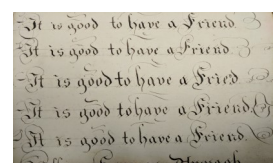 It is good to have a Friend
It is good to have a Friend
It is good to have a Fried
It is good to have a Friend
It is good to have a Friend